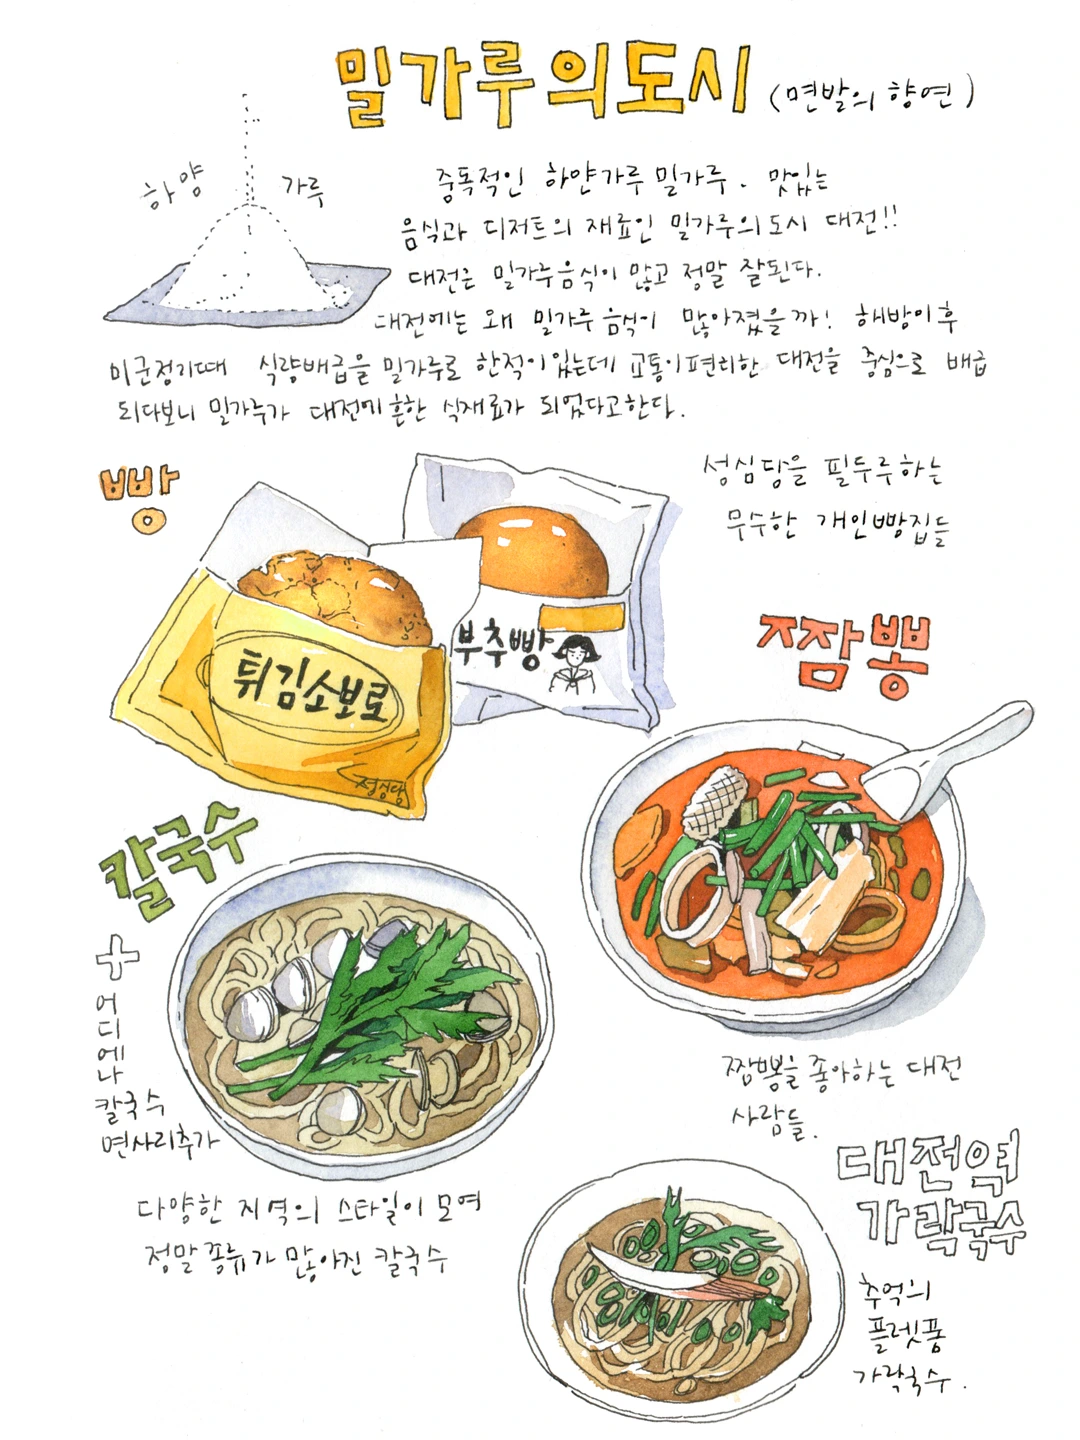 밀가루의도시 (면발의 향연)
하얀 가루
중독적인 하얀가루 밀가루. 맛있는
음식과 디저트의 재료인 밀가루의도시 대전!!
대전은 밀가루음식이 많고 정말 잘된다.
대전에는 왜 밀가루 음식이 많아졌을까! 해방이후
미군정기때 식량배급을 밀가루로 한적이있는데 교통이편리한 대전을 중심으로 배급
되다보니 밀가루가 대전에 흔한 식재료가 되었다고한다.
빵
성심당을 필두루하는
무수한 개인빵집들
튀김소보로
부추빵
짬뽕
칼국수
+
어
디
에
나
칼국수
면사리추가
짬뽕을 좋아하는 대전
사람들.
다양한 지역의 스타일이 모여
정말 종류가 많아진 칼국수
대전역
가락국수
추억의
플렛폼
가락국수.